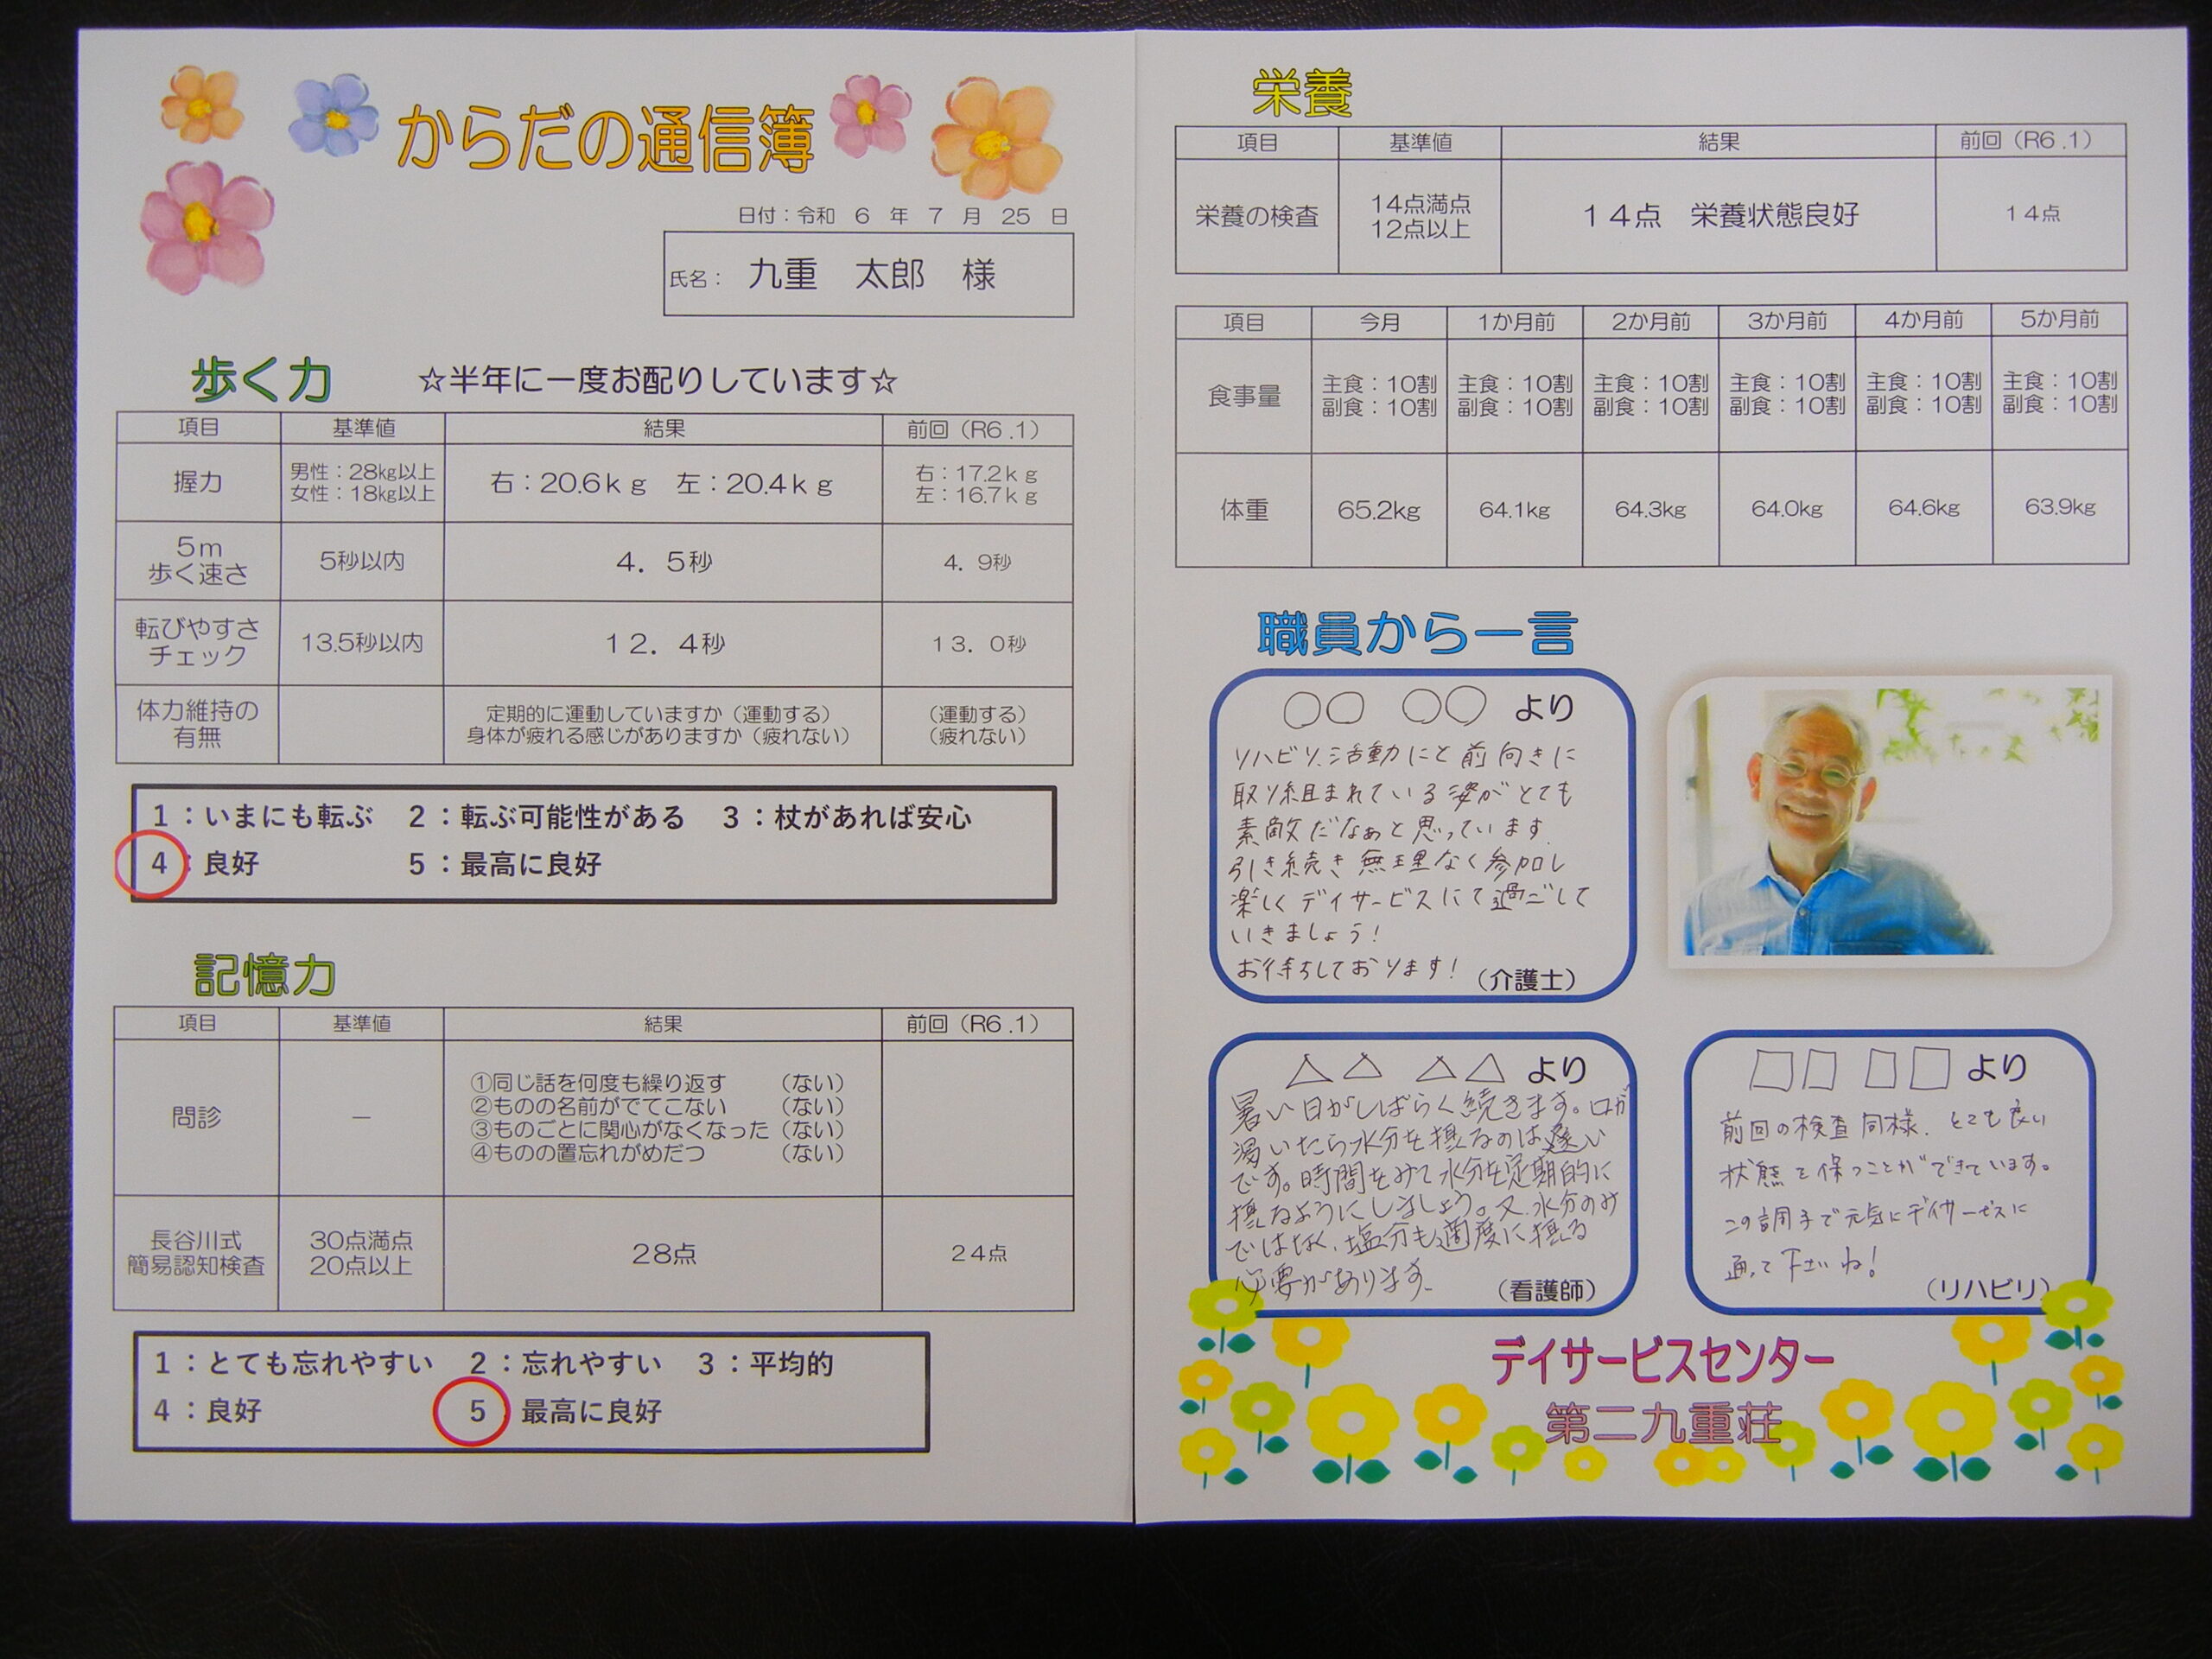 からだの通信簿
日付：令和 6 年 7 月 25 日
氏名： 九重 太郎 様
歩く力 ☆半年に一度お配りしています☆
項目 基準値 結果 前回（R6.1）
握力 男性：28㎏以上 右：20.6ｋｇ 左：20.4ｋｇ 右：17.2ｋｇ
女性：18㎏以上 左：16.7ｋｇ
5ｍ
歩く速さ 5秒以内 4．5秒 4．9秒
転びやすさ
チェック 13.5秒以内 12．4秒 13．0秒
体力維持の 定期的に運動していますか（運動する） （運動する）
有無 身体が疲れる感じがありますか（疲れない） （疲れない）
1：いまにも転ぶ 2：転ぶ可能性がある 3：杖があれば安心
4：良好 5：最高に良好
記憶力
項目 基準値 結果 前回（R6.1）
問診 －
①同じ話を何度も繰り返す （ない）
②ものの名前がでてこない （ない）
③ものごとに関心がなくなった（ない）
④ものの置忘れがめだつ （ない）
長谷川式 30点満点 28点 24点
簡易認知検査 20点以上
1：とても忘れやすい 2：忘れやすい 3：平均的
4：良好 5 最高に良好
栄養
項目 基準値 結果 前回（R6.1）
栄養の検査 14点満点 14点 栄養状態良好 14点
12点以上
項目 今月 1か月前 2か月前 3か月前 4か月前 5か月前
食事量 主食：10割 主食：10割 主食：10割 主食：10割 主食：10割 主食：10割
副食：10割 副食：10割 副食：10割 副食：10割 副食：10割 副食：10割
体重 65.2kg 64.1kg 64.3kg 64.0kg 64.6kg 63.9kg
職員から一言
○○ ○○ より
リハビリ、活動にと前向きに
取り組まれている姿がとても
素敵だなぁと思っています。
引き続き無理なく参加し
楽しくデイサービスにて過ごして
いきましょう！
お待ちしております！
（介護士）
△△ △△ より
暑い日がしばらく続きます。口が
渇いたら水分を摂るのは遅い
です。時間をみて水分を定期的に
摂るようにしましょう。又、水分のみ
ではなく、塩分も適度に摂る
必要があります。
（看護師）
□□ □□ より
前回の検査同様、とても良い
状態を保つことができています。
この調子で元気にデイサービスに
通って下さいね！
（リハビリ）
デイサービスセンター
第二九重荘